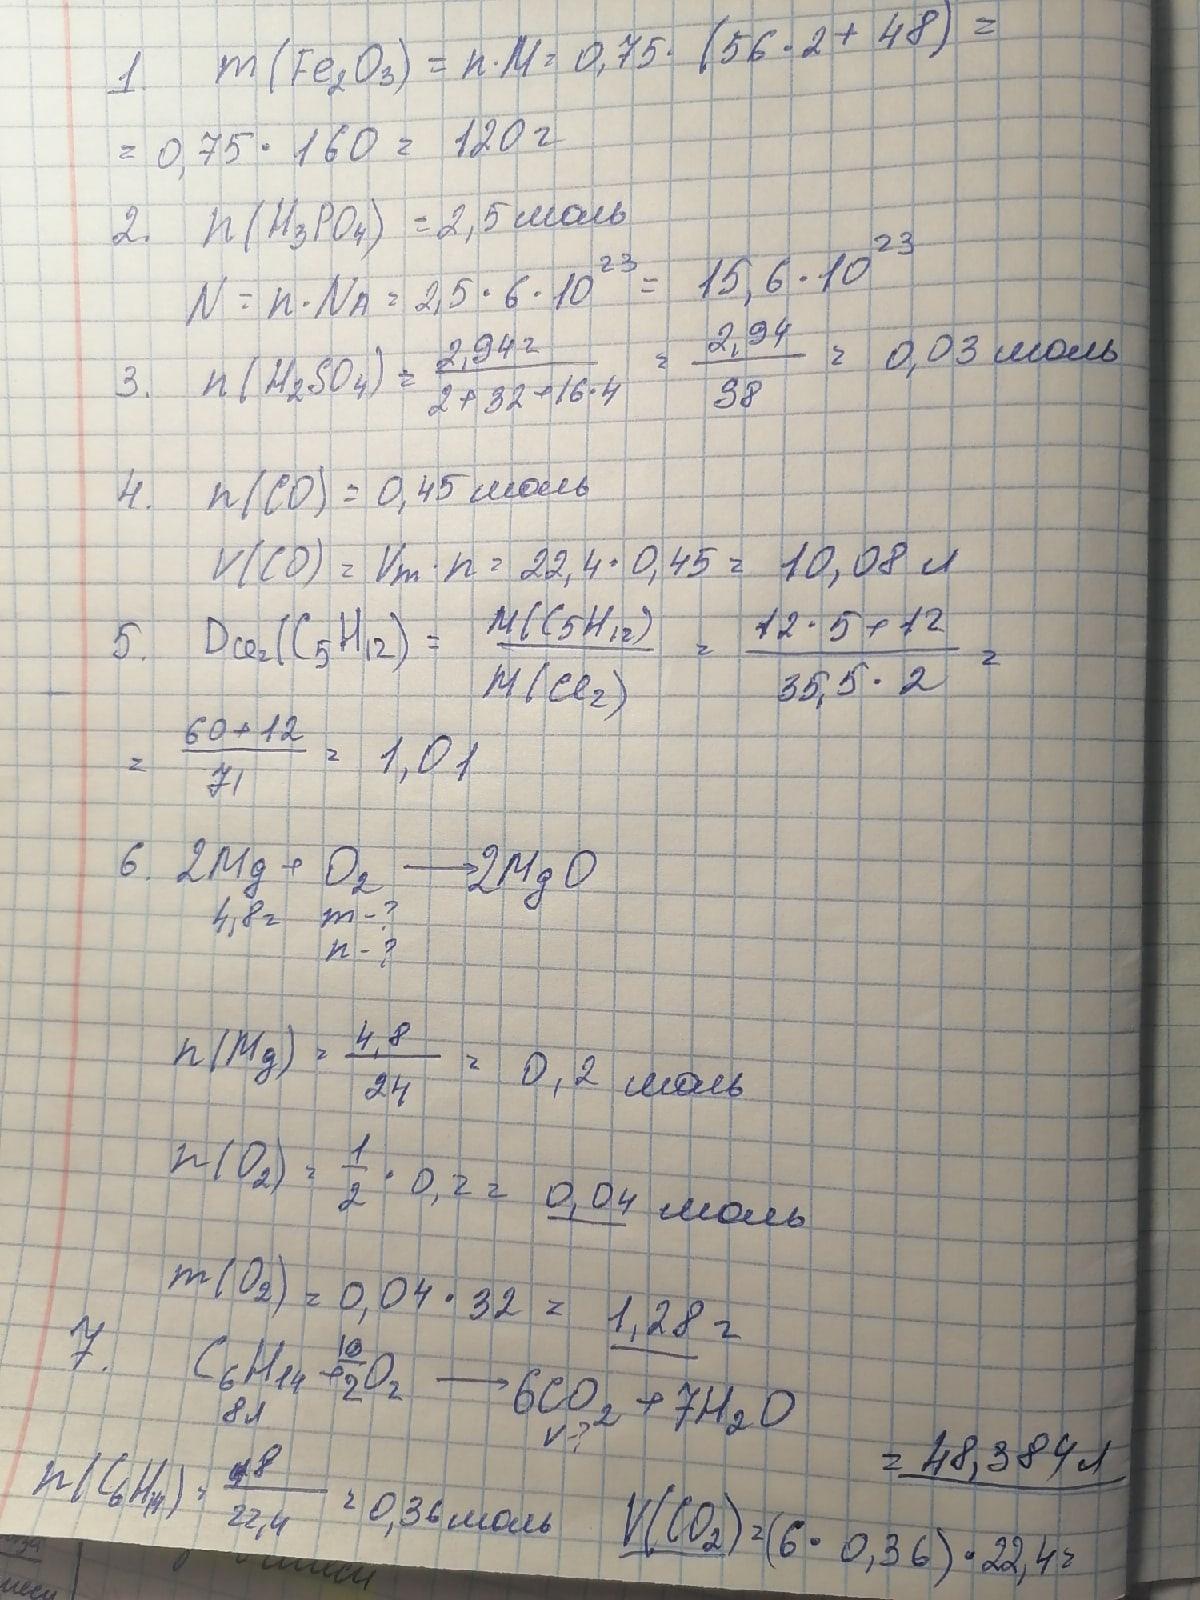 1. m(Fe₂O₃) = n·M = 0,75·(56·2+48) =
= 0,75·160 = 120г
2. n(H₃PO₄) = 2,5моль
N = n·NA = 2,5·6·10²³ = 15,6·10²³
3. n(H₂SO₄) = 2,94г/(2+32+16·4) = 2,94/98 = 0,03 моль
4. n(CO) = 0,45моль
V(CO) = Vm·n = 22,4·0,45 = 10,08 л
5. Dcl₂(C₅H₁₂) = M(C₅H₁₂)/M(Cl₂) = (12·5+12)/(35,5·2) =
= (60+12)/71 = 1,01
6. 2Mg + O₂ → 2MgO
4,8г m-?
n-?
n(Mg) = 4,8/24 = 0,2 моль
n(O₂) = 1/2·0,2 = 0,04 моль
m(O₂) = 0,04·32 = 1,28г
7. C₆H₁₄ + 19/2O₂ → 6CO₂ + 7H₂O
8л V-?
n(C₆H₁₄) = 8/22,4 = 0,36моль
V(CO₂) = (6·0,36)·22,4 =
= 48,384л